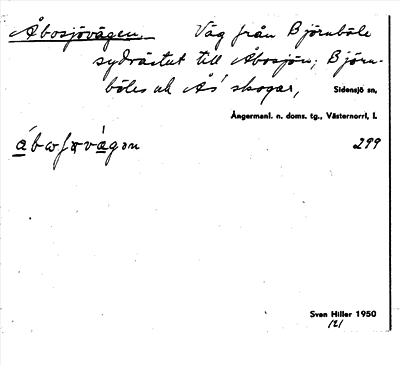 Åbosjövägen Väg från Björnböle
sydväst ut till Åbosjön; Björn-
böles och Ås' skogar, Sidensjö sn,
Ångermanl. n. doms. tg., Västernorrl. l.
299
Sven Hiller 1950
121